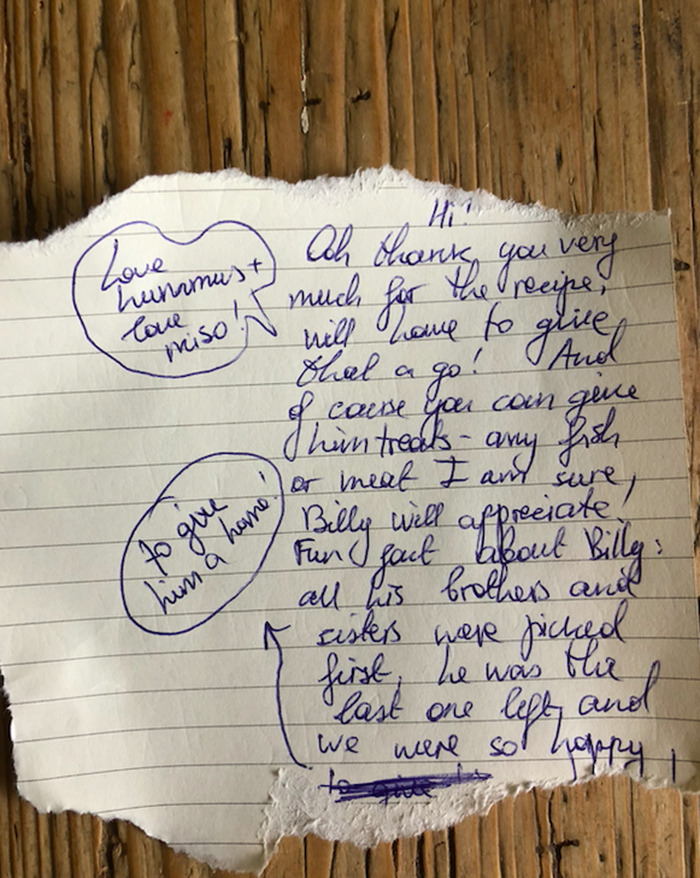 Hi!
Ooh thank you very
much for the recipe,
will have to give
that a go! And
of cause you can give
him treats - any fish
or meat I am sure,
Billy will appreciate!
Fun fact about Billy:
all his brothers and
sisters were picked
first, he was the
last one left, and
we were so happy
to give
to give
him a home!
Love
hummus +
love
miso!